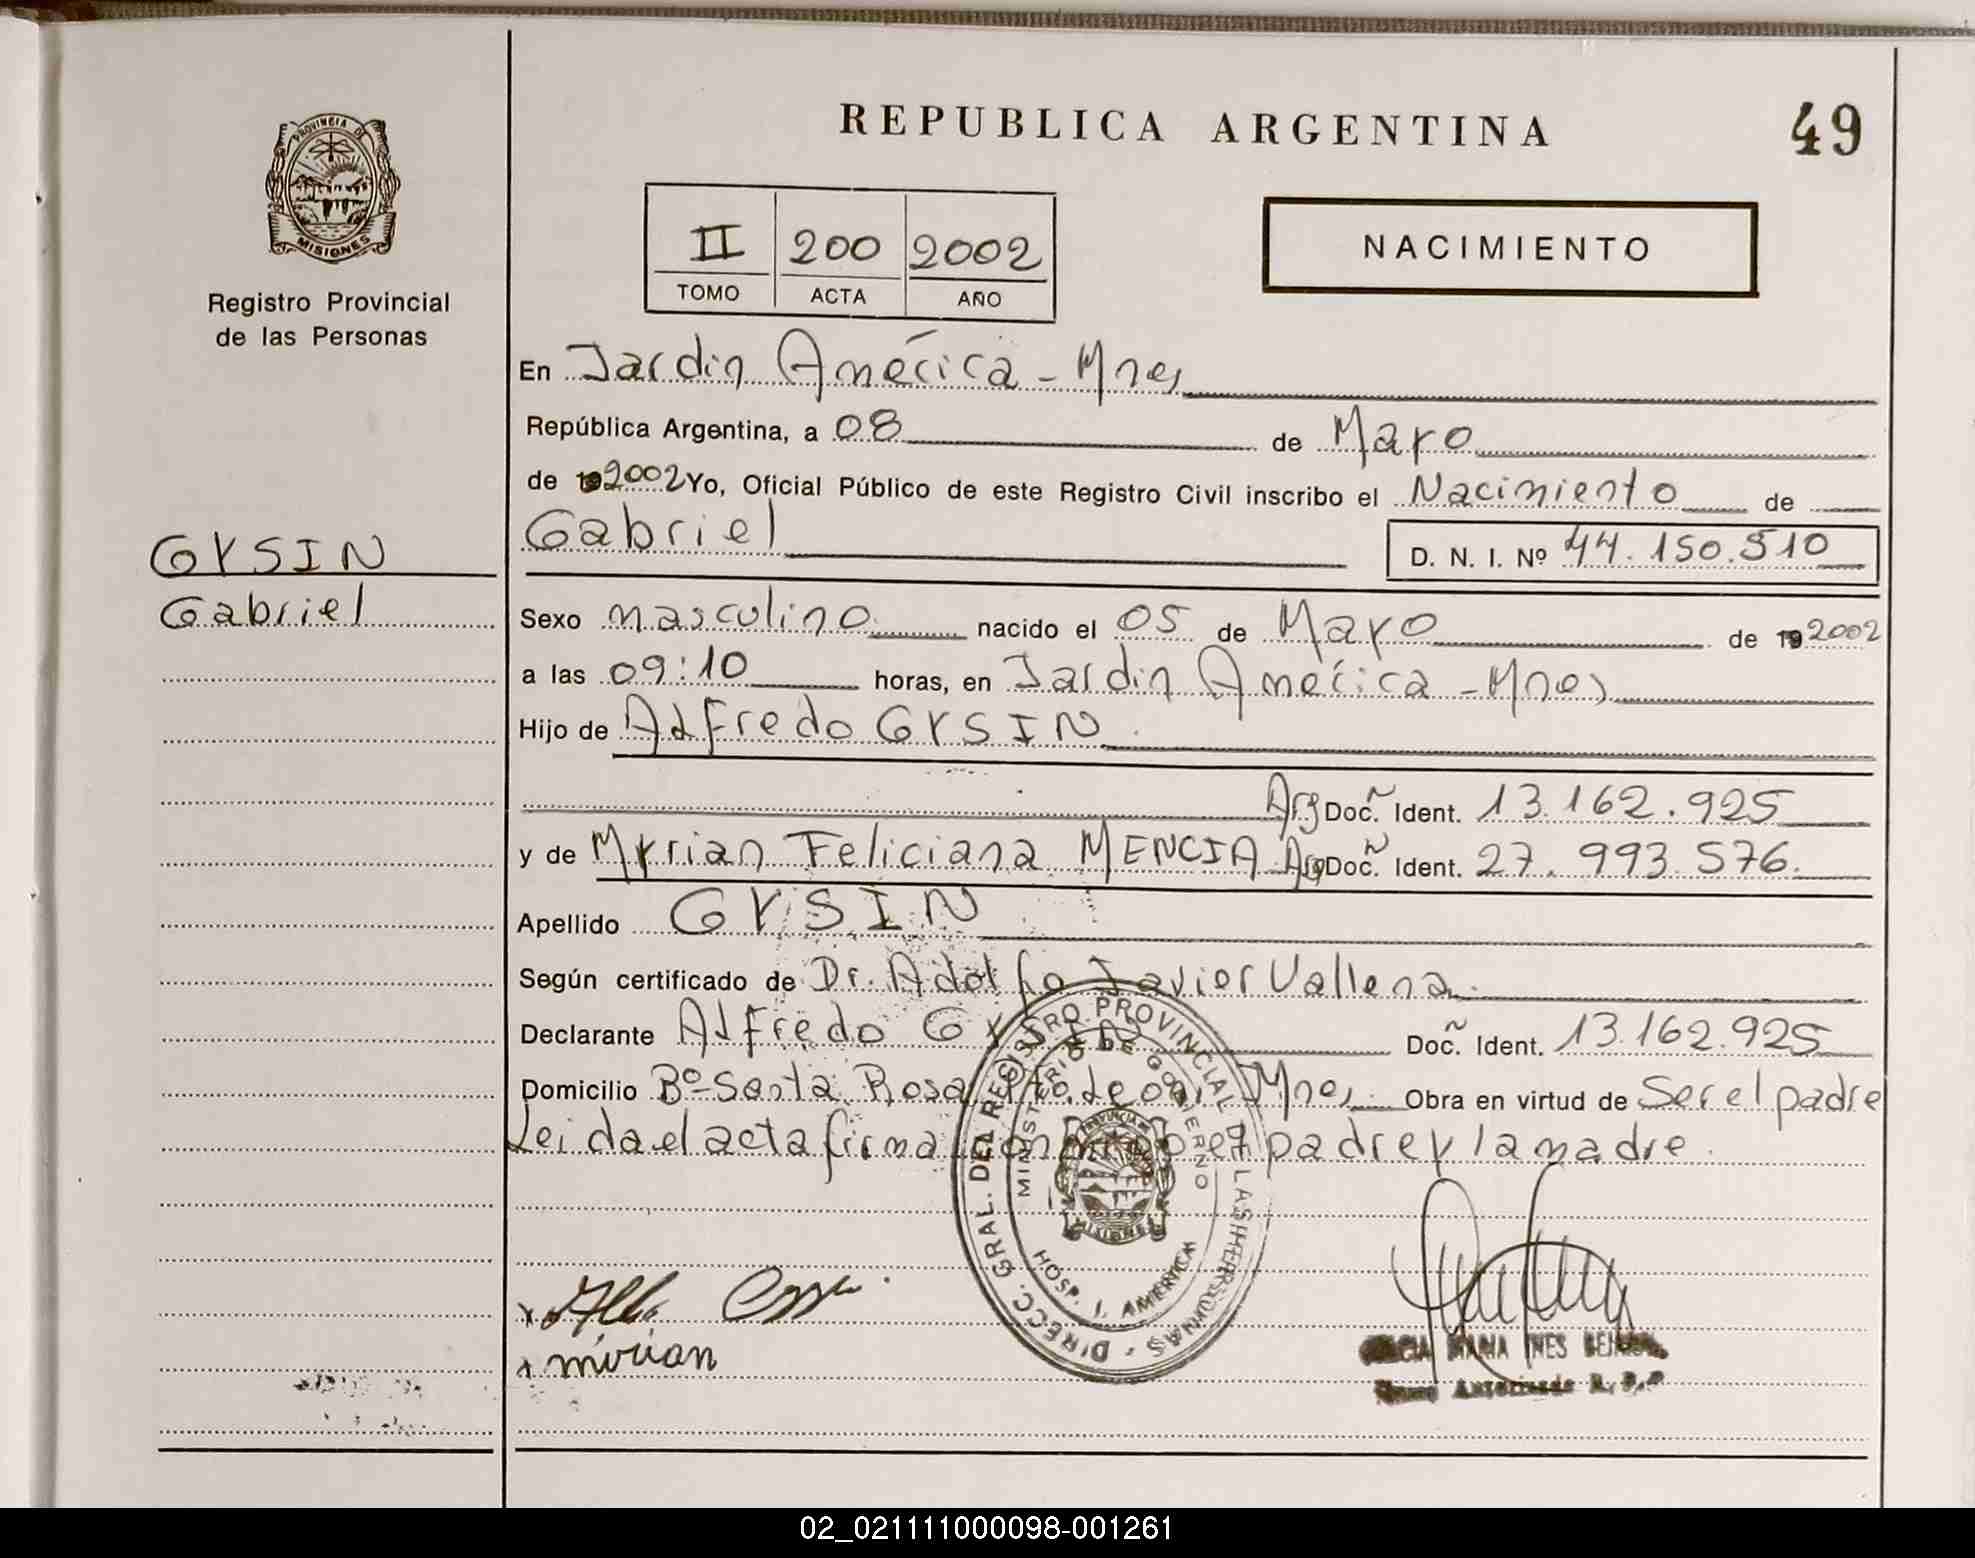 REPUBLICA ARGENTINA
49
PROVINCIA DE
MISIONES
Registro Provincial
de las Personas
II 200 2002
TOMO ACTA AÑO
NACIMIENTO
En Jardin América - Mnes
República Argentina, a 08 de Mayo
de 192002 Yo, Oficial Público de este Registro Civil inscribo el Nacimiento de
Gabriel
D. N. I. Nº 44.150.510
GYSIN
Gabriel
Sexo masculino nacido el 05 de Mayo de 192002
a las 09:10 horas, en Jardin América - Mnes
Hijo de Alfredo GYSIN
Arg Doc. Ident. 13.162.925
y de Myrian Feliciana MENCIA Arg Doc. Ident. 27.993.576.
Apellido GYSIN
Según certificado de Dr. Adolfo Javier Vallena
Declarante Alfredo GYSIN Doc. Ident. 13.162.925
Domicilio Bº Santa Rosa Pto. Leoni Mnes Obra en virtud de Ser el padre
Leida el acta firman conmigo el padre y la madre.
DIRECC. GRAL. DEL REGISTRO PROVINCIAL DE LAS PERSONAS
MINISTERIO DE GOBIERNO
HOSP. J. AMERICA
MISIONES
mirian
MARIA INES
Autorizada R. P. P
02_021111000098-001261